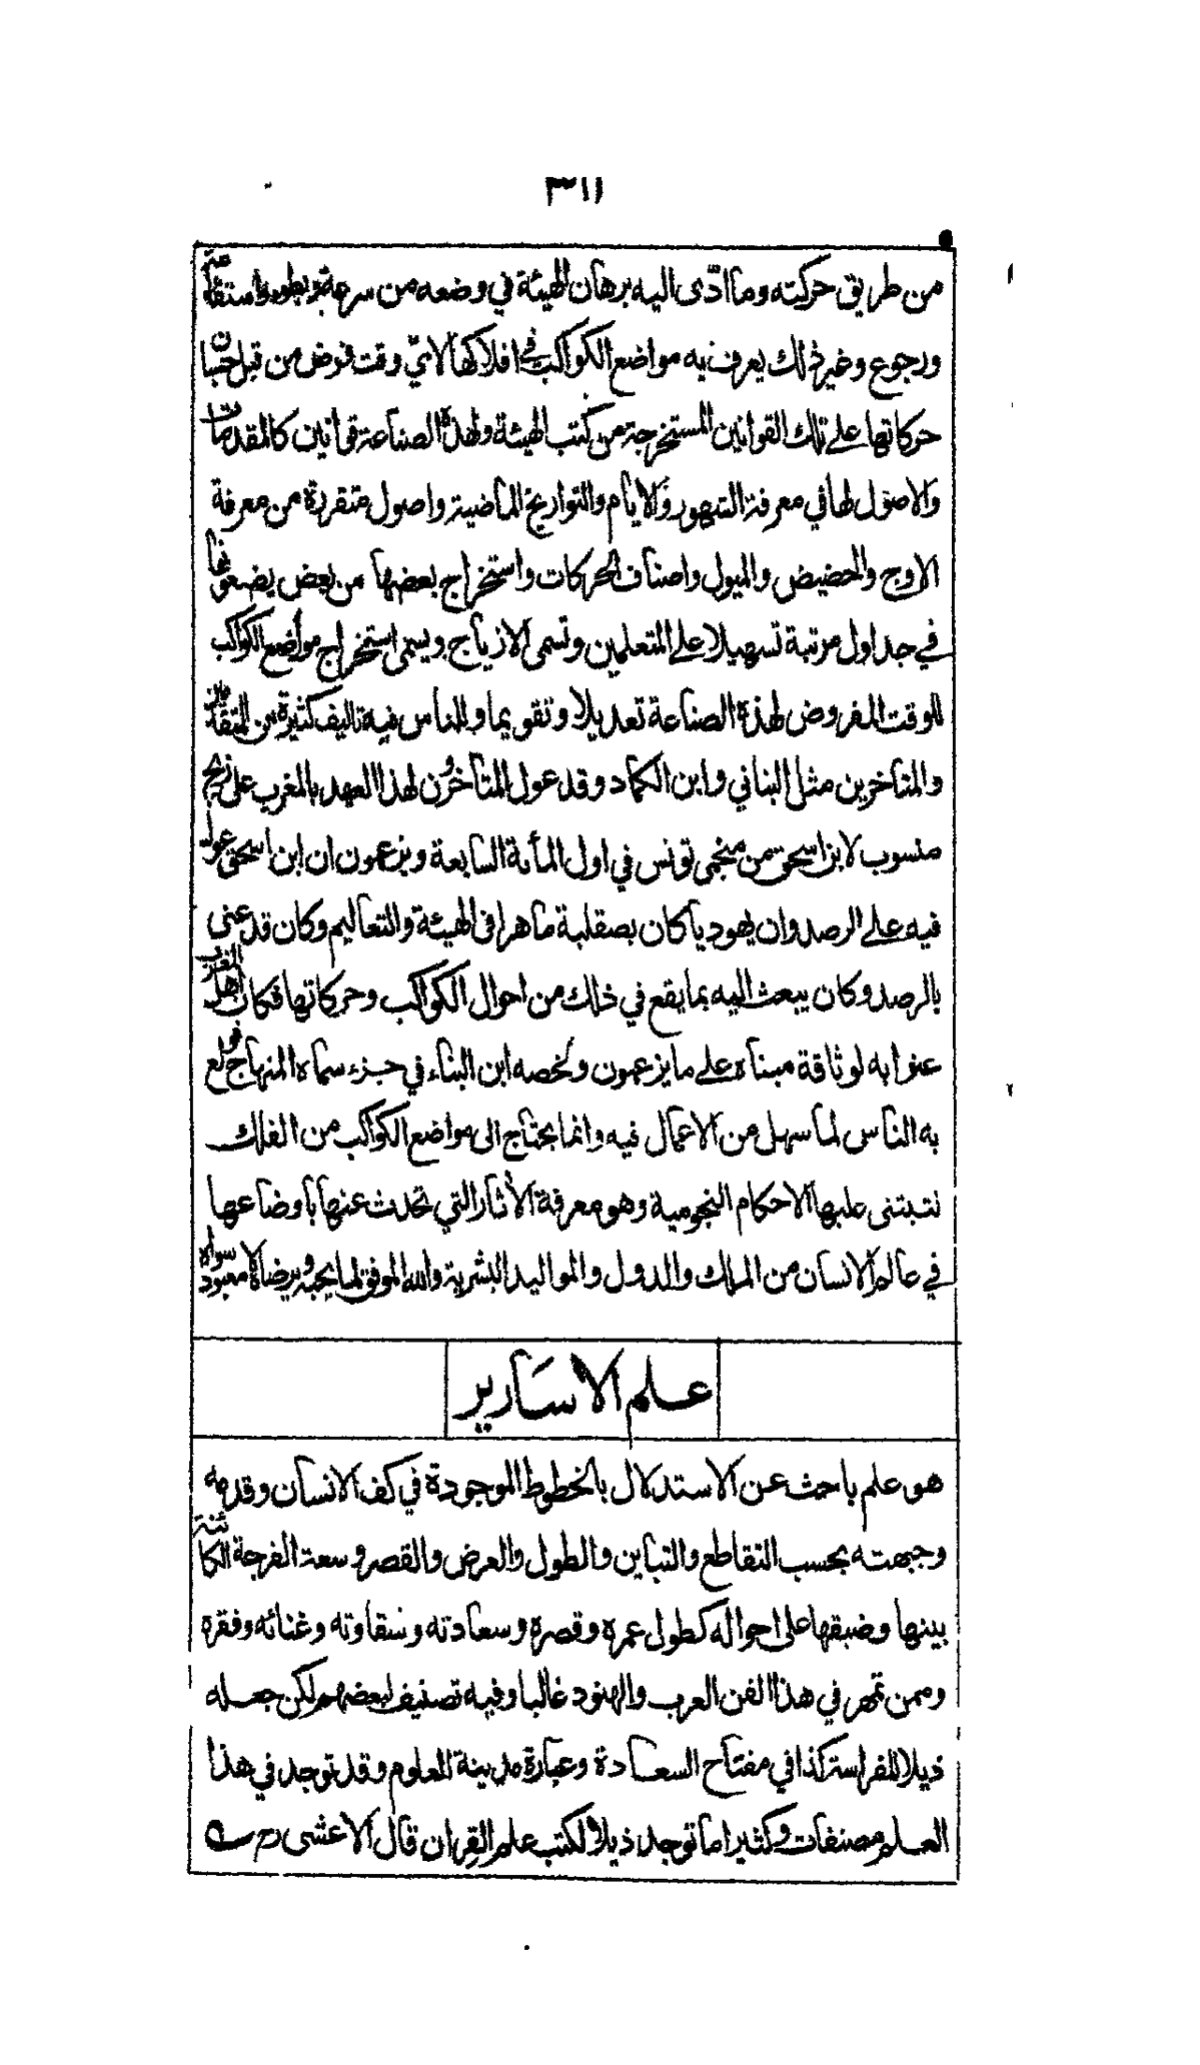 ٣١١
من طريق حركته وما ادّى اليه برهان الهيئة في وضعه من سرعة وبطوء واستقامة
ورجوع وغير ذلك يعرف به مواضع الكواكب في افلاكها لايّ وقت فرض من قبل حسبان
حركاتها على تلك القوانين المستخرجة من كتب الهيئة ولهذه الصناعة قوانين كالمقدمات
والاصول لها في معرفة الشهور والايام والتواريخ الماضية واصول متقررة من معرفة
الاوج والحضيض والميول واصناف الحركات واستخراج بعضها من بعض يضعونها
في جداول مرتبة تسهيلا على المتعلمين وتسمى الازياج ويسمى استخراج مواضع الكواكب
للوقت المفروض لهذه الصناعة تعديلا وتقويما وللناس فيه تاليف كثيرة من المتقدمين
والمتاخرين مثل البناني وابن الكماد وقد عول المتأخرون لهذا العهد بالمغرب على زيج
منسوب لابن اسحق من منجمى تونس في اول المأنة السابعة ويزعمون ان ابن اسحق عول
فيه على الرصد وان يهوديا كان بصقلية ماهرا فى الهيئة والتعاليم وكان قد عنى
بالرصد وكان يبعث اليه بما يقع في ذلك من احوال الكواكب وحركاتها فكان اهل المغرب
عنوا به لوثاقة مبناه على ما يزعمون ولخصه ابن البناء في جزء سماه المنهاج فولع
به الناس لما سهل من الاعمال فيه وانما يحتاج الى مواضع الكواكب من الفلك
لتبتنى عليها الاحكام النجومية وهو معرفة الأثار التي تحدث عنها باوضاعها
في عالم الانسان من الملك والدول والمواليد البشرية والله الموفق لما يحبه ويرضاه لا معبود سواه
علم الاسارير
هو علم باحث عن الاستدلال بالخطوط الموجودة في كف الانسان وقدمه
وجبهته بحسب التقاطع والتباين والطول والعرض والقصر وسعة الفرجة الكائنة
بينها وضيقها على احواله كطول عمره وقصره وسعادته وشقاوته وغنائه وفقره
وممن تمهر في هذا الفن العرب والهنود غالبا وفيه تصنيف لبعضهم لكن جعله
ذيلا للفراسة كذا في مفتاح السعادة وعبارة مدينة العلوم وقد توجد في هذا
العلم مصنفات وكثيرا ما توجد ذيلا لكتب علم القران قال الاعشى